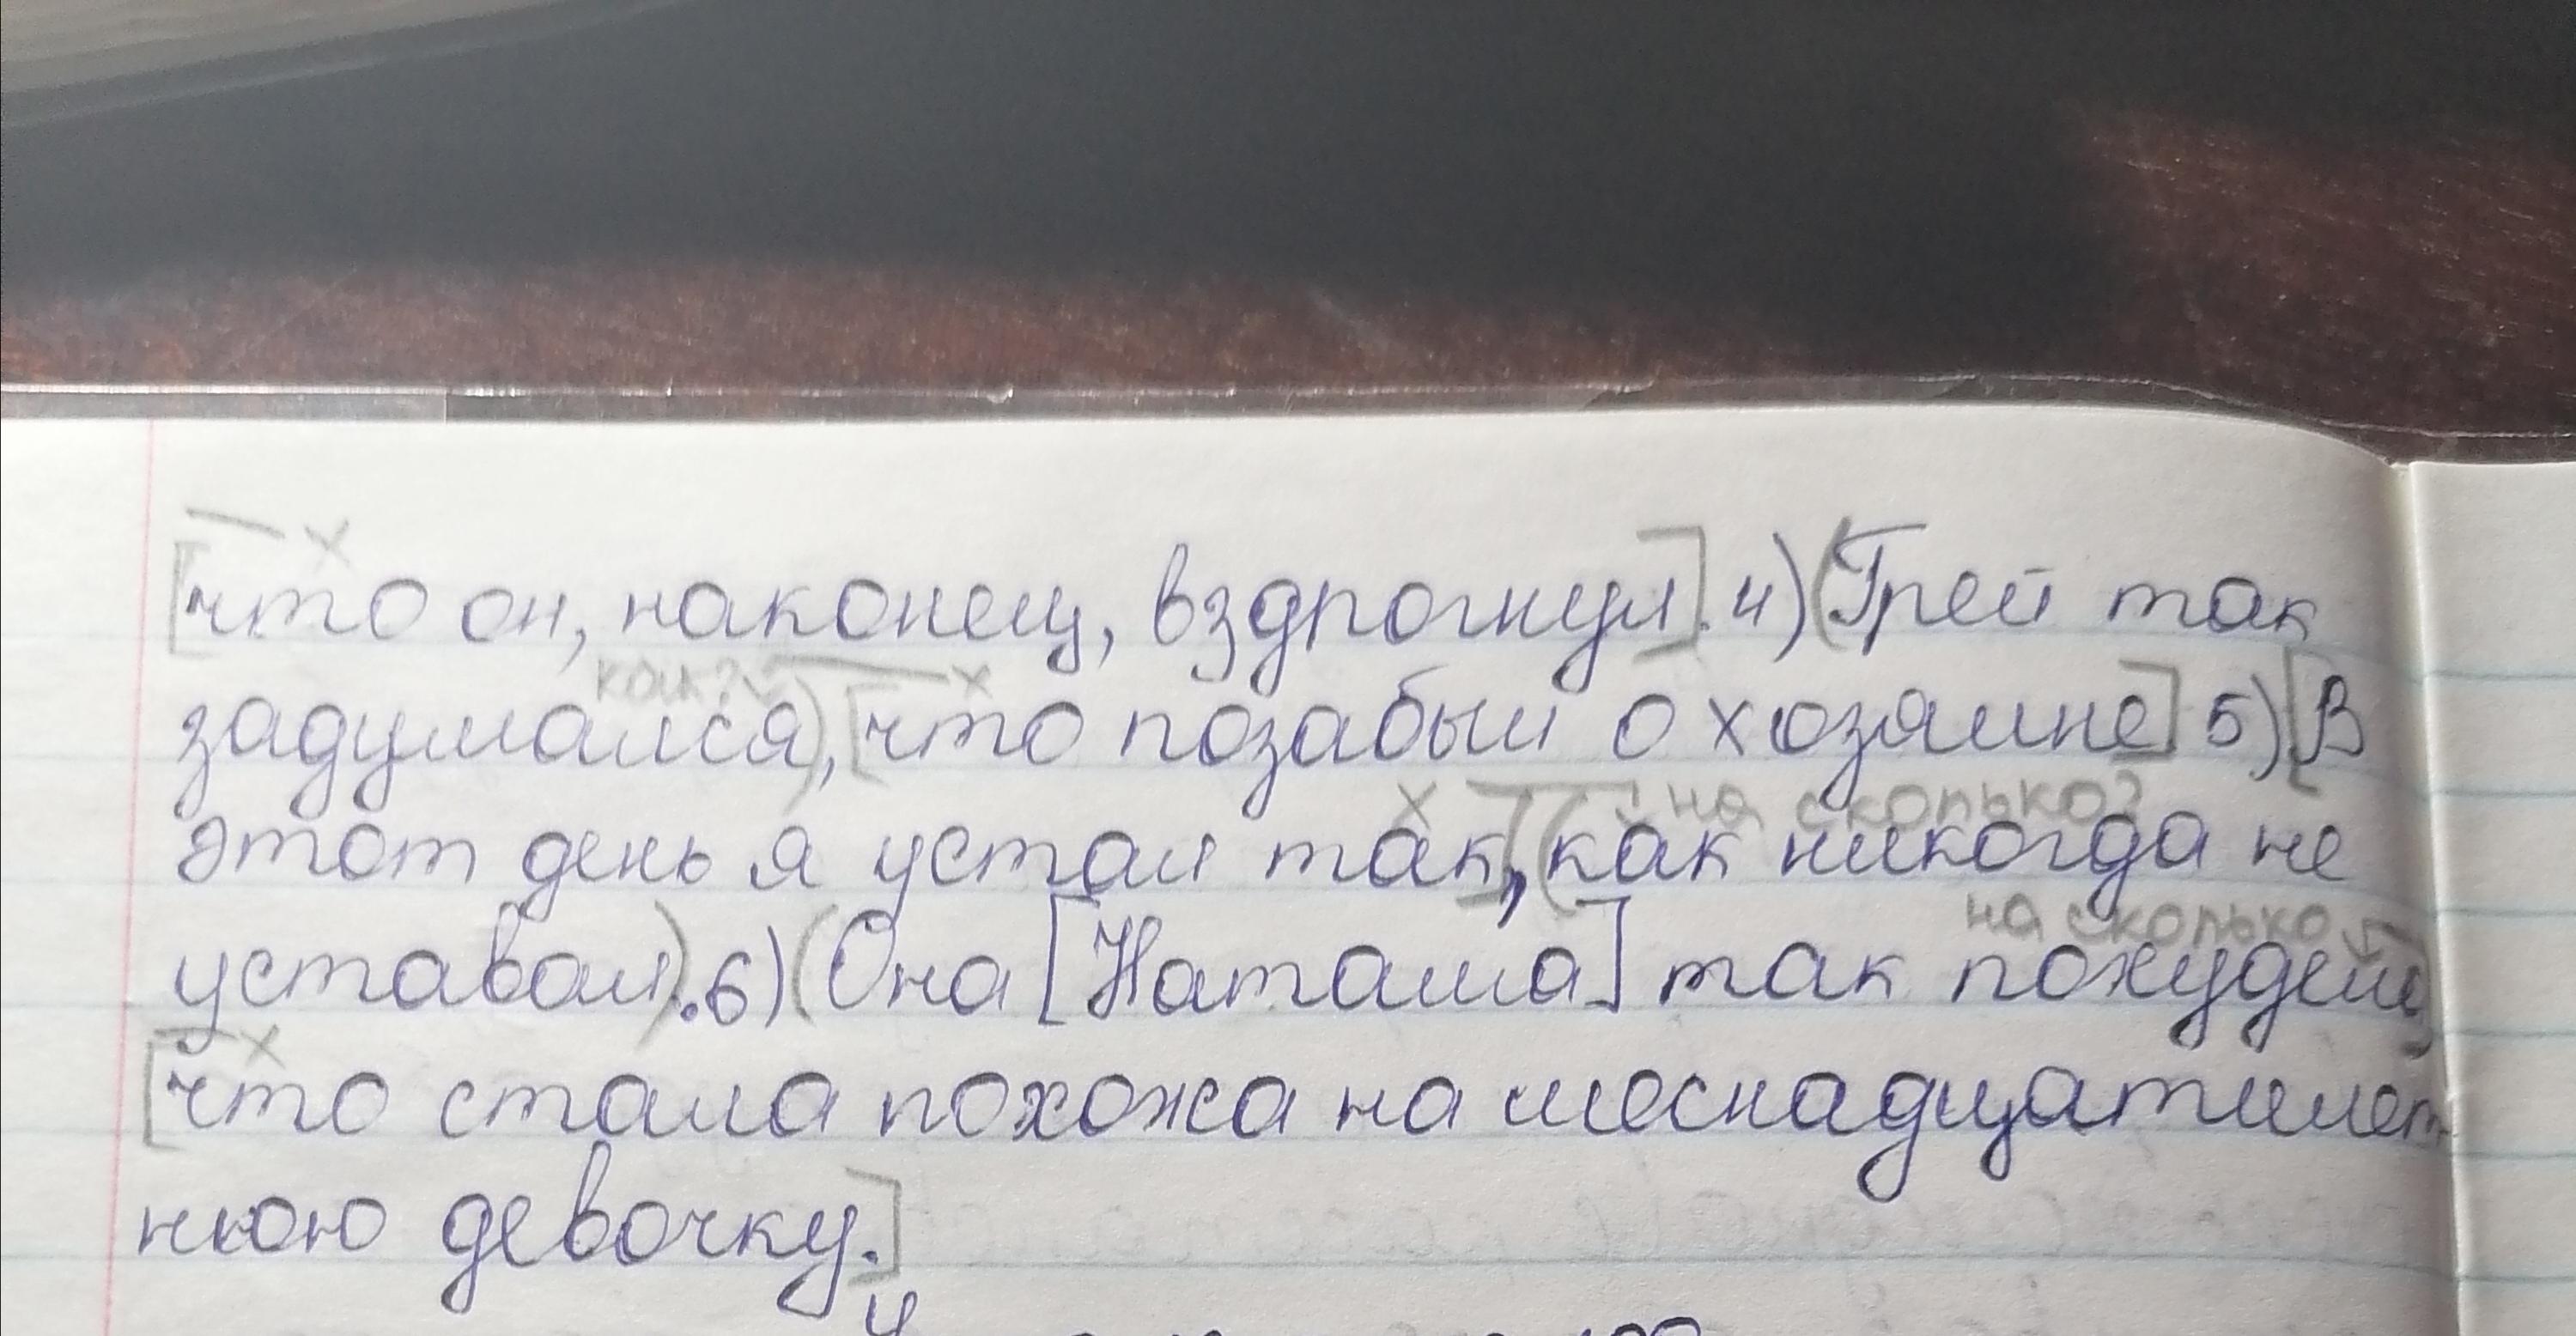 [что он, наконец, вздрогнул]. 4) (Грей так
как?
задумался), [что позабыл о хозяине] 5) [В
на сколько?
этот день я устал так], (как никогда не
на сколько
уставал). 6) (Она [Наташа] так похудела)
[что стала похожа на шеснадцатилет
нюю девочку.]